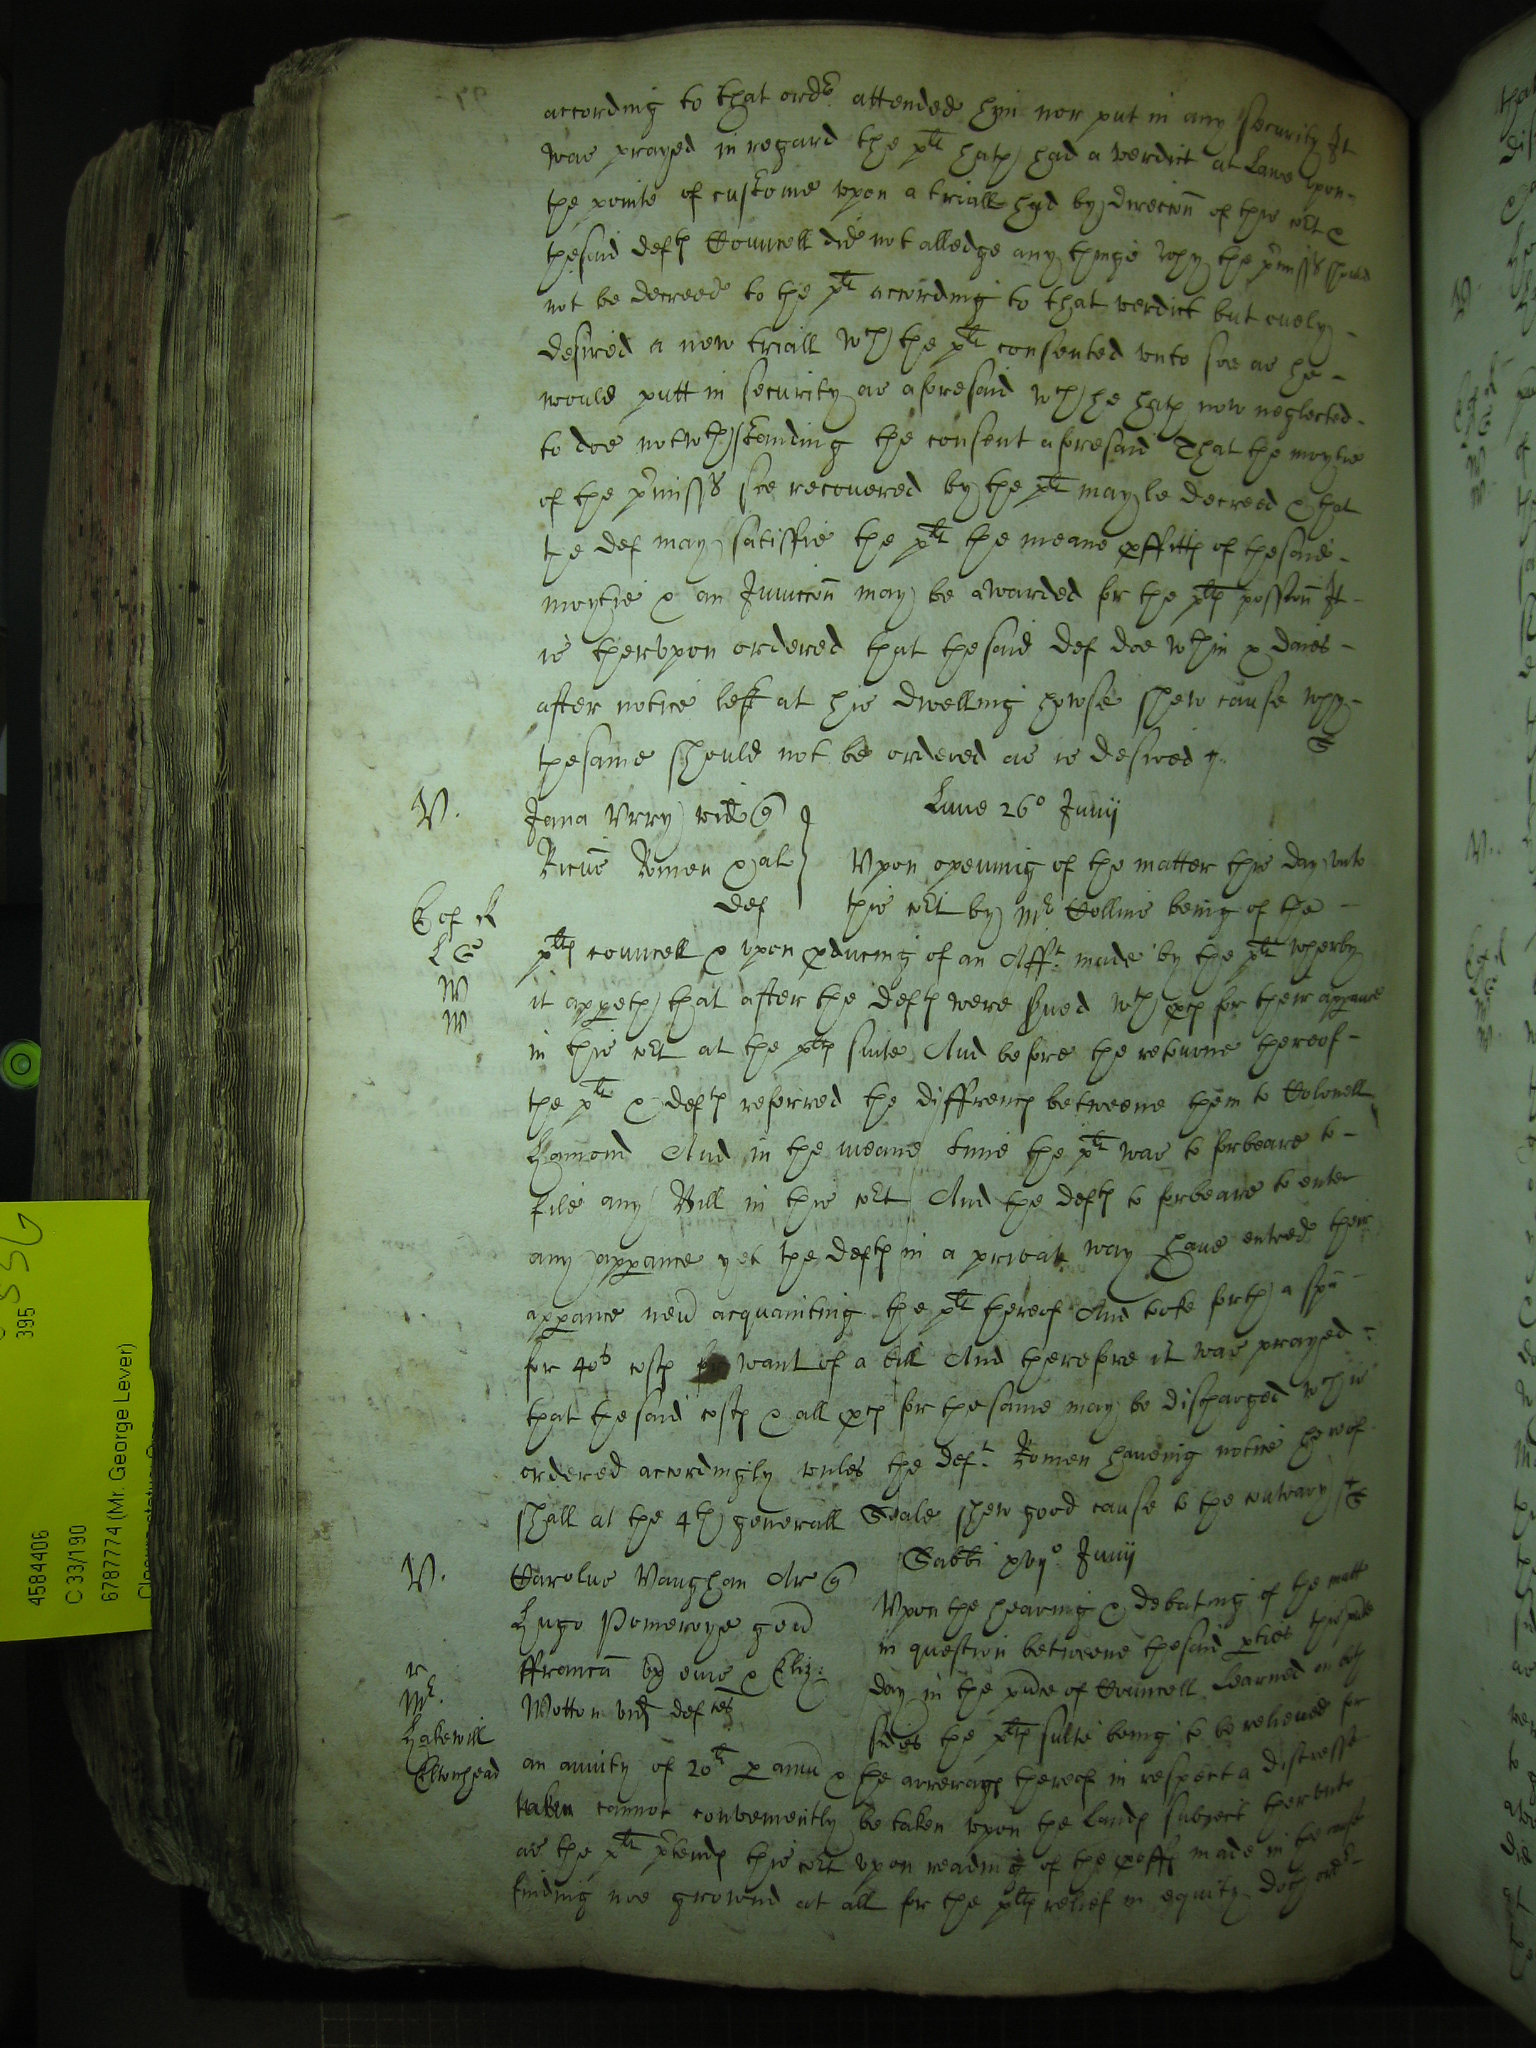 according to that ordr. attended him nor put in any security It
was prayed in regard the plt hath had a verdict at Lawe vpon
the pointe of custome vpon a triall had by direccon of this cort &
thesaid defts Councell did not alledge any thinge why the premisses should
not be decreed to the plt according to that verdict but onely
desired a new triall wch the plt consented vnto soe as he
would putt in security as aforesaid wch he hath now neglected
to doe notwthstanding the consent aforesaid That the moytie
of the premisses soe recouered by the plt may be decreed & that
the def may satisfie the plt the meane proffitts of thesaid
moytie & an Iniunccon may be awarded for the plts possion It
is thervpon ordered that thesaid def doe wthin x daies
after notice left at his dwelling howse shew cause why
thesame should not be ordered as is desired
V.
Jana Vrry vid
Lune 26o Junij
Ricus Romen & al
def
Vpon opening of the matter this day vnto
this cort by Mr Collins being of the
plts councell & vpon producing of an Afft. made by the plt wherby
it appeth that after the defts were serued wth proces for their appance
in this cort at the plts suite And before the retourne thereof
the plt & defts referred the diffrences betweene them to Colonell
Hamond And in the meane time the plt was to forbeare to
file any Bill in this cort And the defts to forbeare to enter
any appance yet the defts in a private way haue entred their
appance neuer acquainting the plt thereof And tooke forth a spa
for 40s costs for want of a bill And therefore it was prayed
that thesaid costs & all proces for thesame may be discharged wch is
ordered accordingly vnles the deft. Romen haueing notice hereof
shall at the 4th generall Seale shew good cause to the contrary
V.
Carolus Vaughan Ar
Sabbi xvijo. Junij
Hugo Pomeroye gen
Vpon the hearing & debating of the matt
in question betweene thesaid parties this
day in the pnce of Councell Learned on both
Mr.
Hakewill
Eltonhead
Francu vx eius & Eliz:
Wotton vid deftes
sides the plts suite being to be relieued for
an anuity of 20li p annu & the arrerages thereof in respect a distresse
taken cannot conveniently be taken vpon the Lands subiect thervnto
as the plt pretends this cort vpon reading of the proffs made in the cause
finding noe grownd at all for the plts relief in equity doth ordr
4584406
C 33/190
6787774 (Mr. George Lever)
395